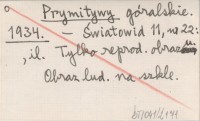 Prymitywy góralskie.
1934. – Światowid 11, nr 22:
, il. Tylko reprod. obrazu.
Obraz lud. na szkle.